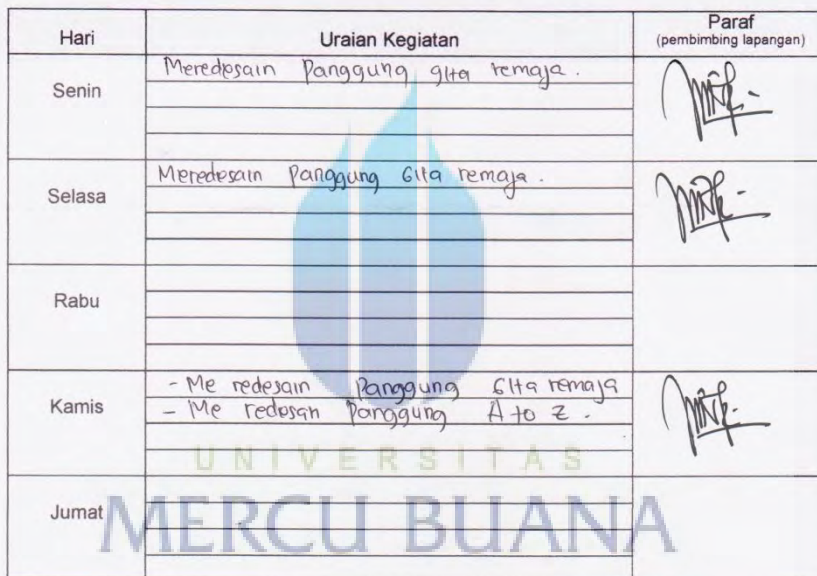 Hari Uraian Kegiatan Paraf
(pembimbing lapangan)
Senin
Meredesain Panggung gita remaja.
Selasa
Meredesain Panggung Gita remaja.
Rabu
Kamis
- Me redesain Panggung Gita remaja
- Me redesan Panggung A to Z.
UNIVERSITAS
Jumat
MERCU BUANA